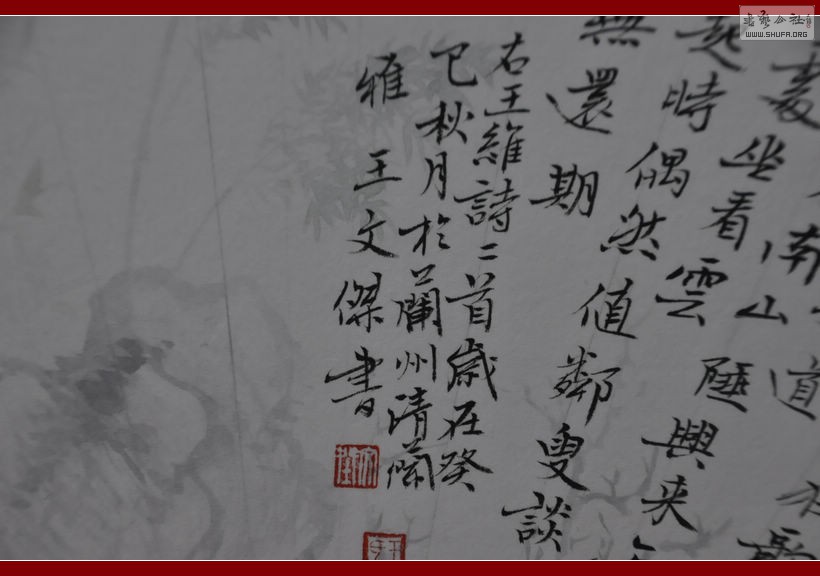 道
南山陲興來
處坐看雲
起時偶然值鄰叟談
無還期
右王維詩二首歲在癸
巳秋月於蘭州清蘭
雅王文傑書
WWW.SHUFA.ORG